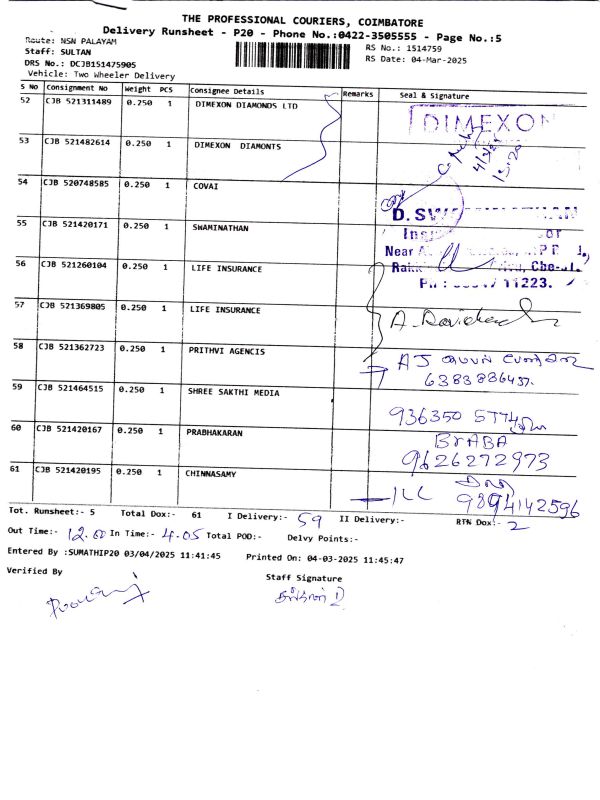 THE PROFESSIONAL COURIERS, COIMBATORE
Delivery Runsheet - P20 - Phone No.:0422-3505555 - Page No.:5
Route: NSN PALAYAM
RS No.: 1514759
Staff: SULTAN
RS Date: 04-Mar-2025
DRS No.: DCJB151475905
Vehicle: Two Wheeler Delivery
S No Consignment No Weight PCS Consignee Details Remarks Seal & Signature
52 CJB 521311489 0.250 1 DIMEXON DIAMONDS LTD
DIMEXON
53 CJB 521482614 0.250 1 DIMEXON DIAMONTS
54 CJB 520748585 0.250 1 COVAI
55 CJB 521420171 0.250 1 SWAMINATHAN
Near
56 CJB 521260104 0.250 1 LIFE INSURANCE
11223.
57 CJB 521369805 0.250 1 LIFE INSURANCE
58 CJB 521362723 0.250 1 PRITHVI AGENCIS
AJ
6383836437.
59 CJB 521464515 0.250 1 SHREE SAKTHI MEDIA
936350 5774
60 CJB 521420167 0.250 1 PRABHAKARAN
BRABA
9626272973
61 CJB 521420195 0.250 1 CHINNASAMY
9894142596
Tot. Runsheet:- 5 Total Dox:- 61 I Delivery:- 59 II Delivery:- RTN Dox:- 2
Out Time:- 12.00 In Time:- 4.05 Total POD:- Delvy Points:-
Entered By :SUMATHIP20 03/04/2025 11:41:45 Printed On: 04-03-2025 11:45:47
Verified By
Staff Signature